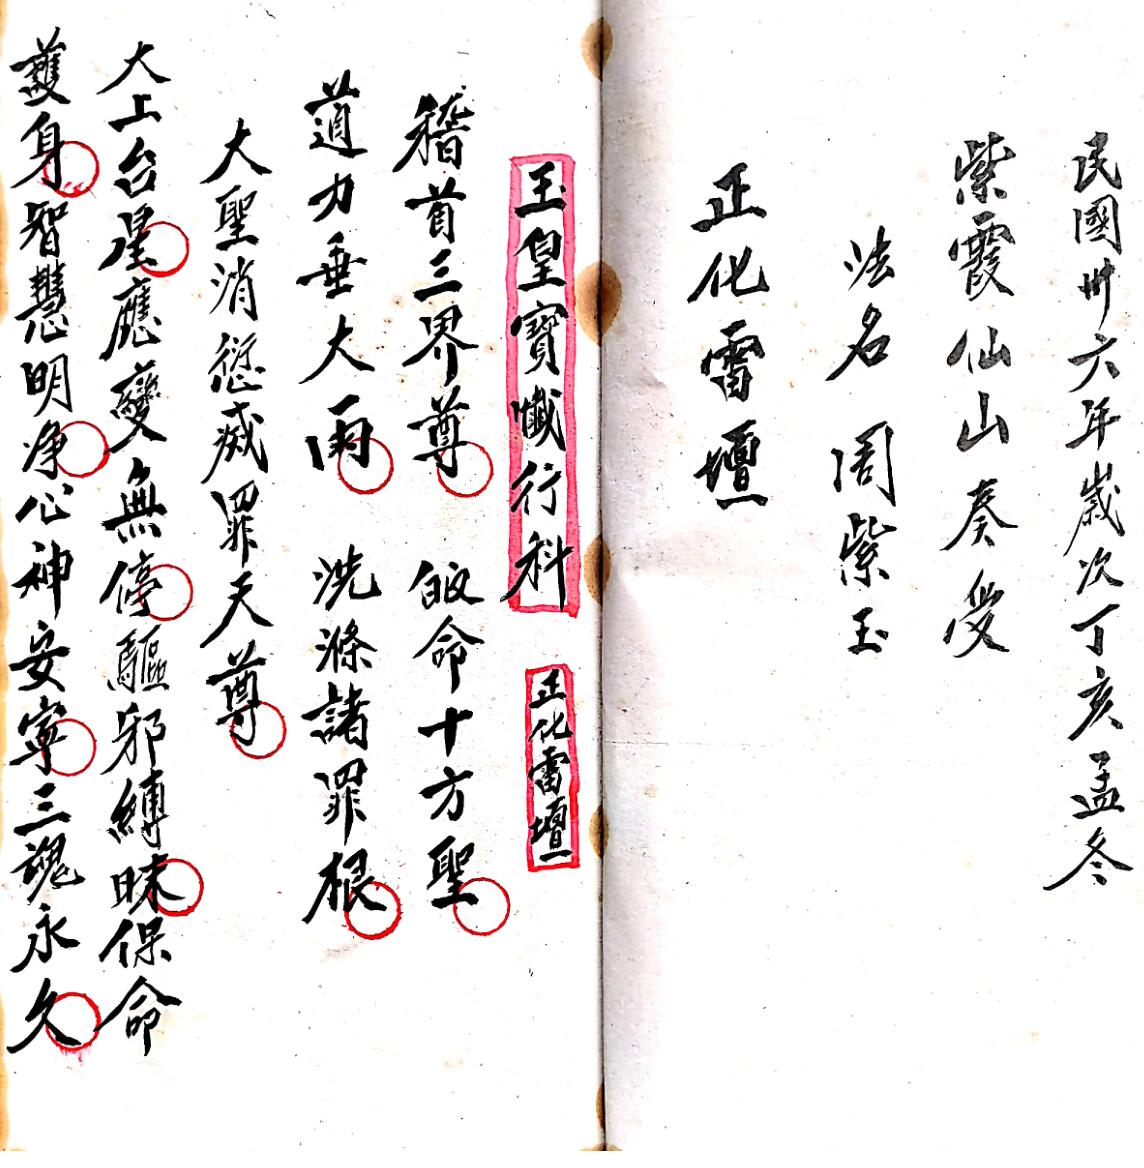 民國卅六年歲次丁亥孟冬
紫霞仙山奏受
法名 周紫玉
正化雷壇
玉皇寶懺行科 正化雷壇
稽首三界尊 皈命十方聖
道力垂大雨 洗滌諸罪根
大聖消愆滅罪天尊
太上台星應變無停驅邪縛昧保命
護身智慧明淨心神安寧三魂永久